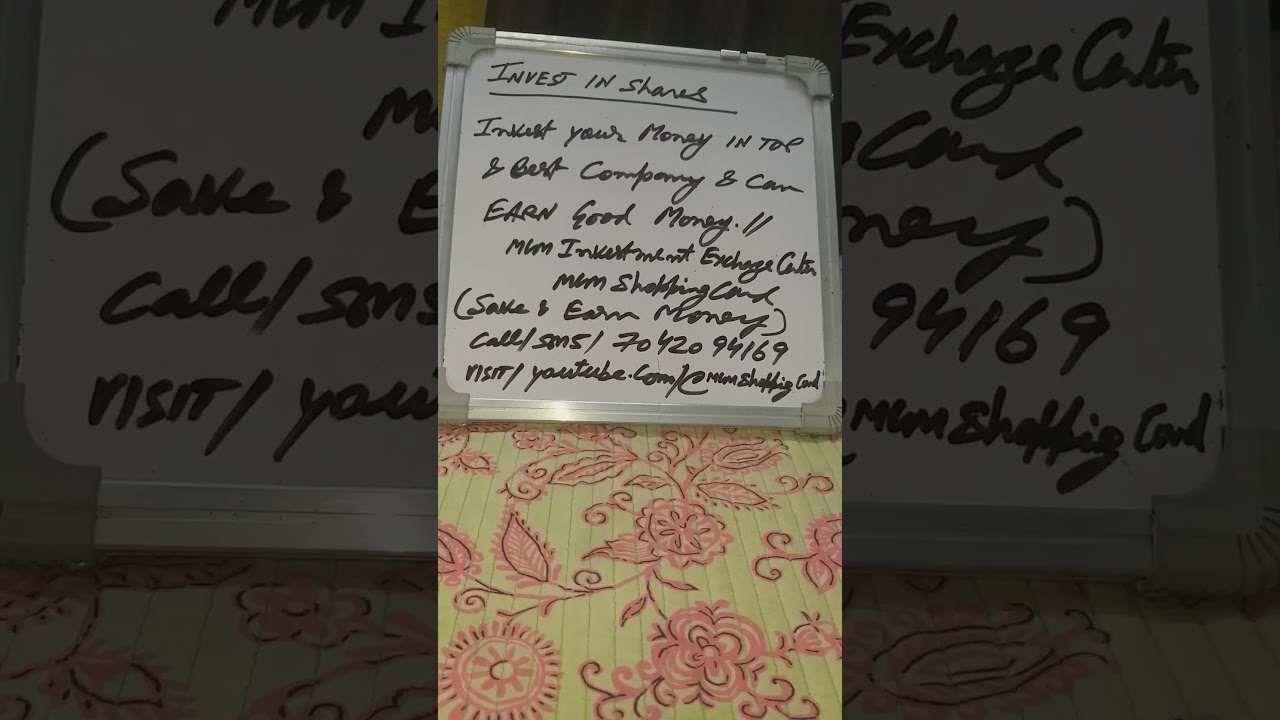 INVEST IN Shares
Invest your Money IN TOP
& Best Company & Can
EARN Good Money.//
MCM Investment Exchange Center
MCM Shopping Card
(Save & Earn Money)
Call/SMS/ 70420 94169
VISIT/ youtube.com/@MCMShopping Card